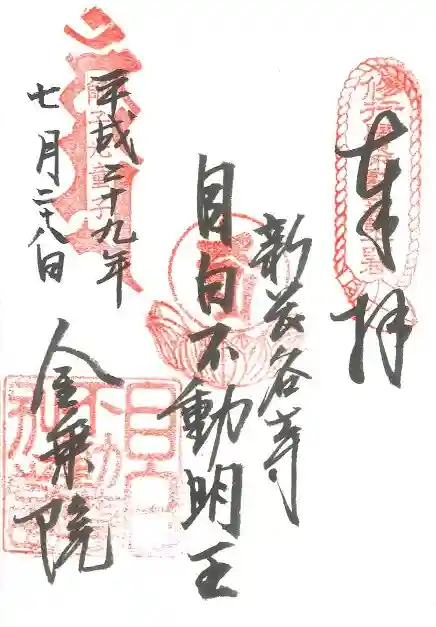 奉拝
新長谷寺
目白不動明王
平成二十九年
七月二十八日
金乗院